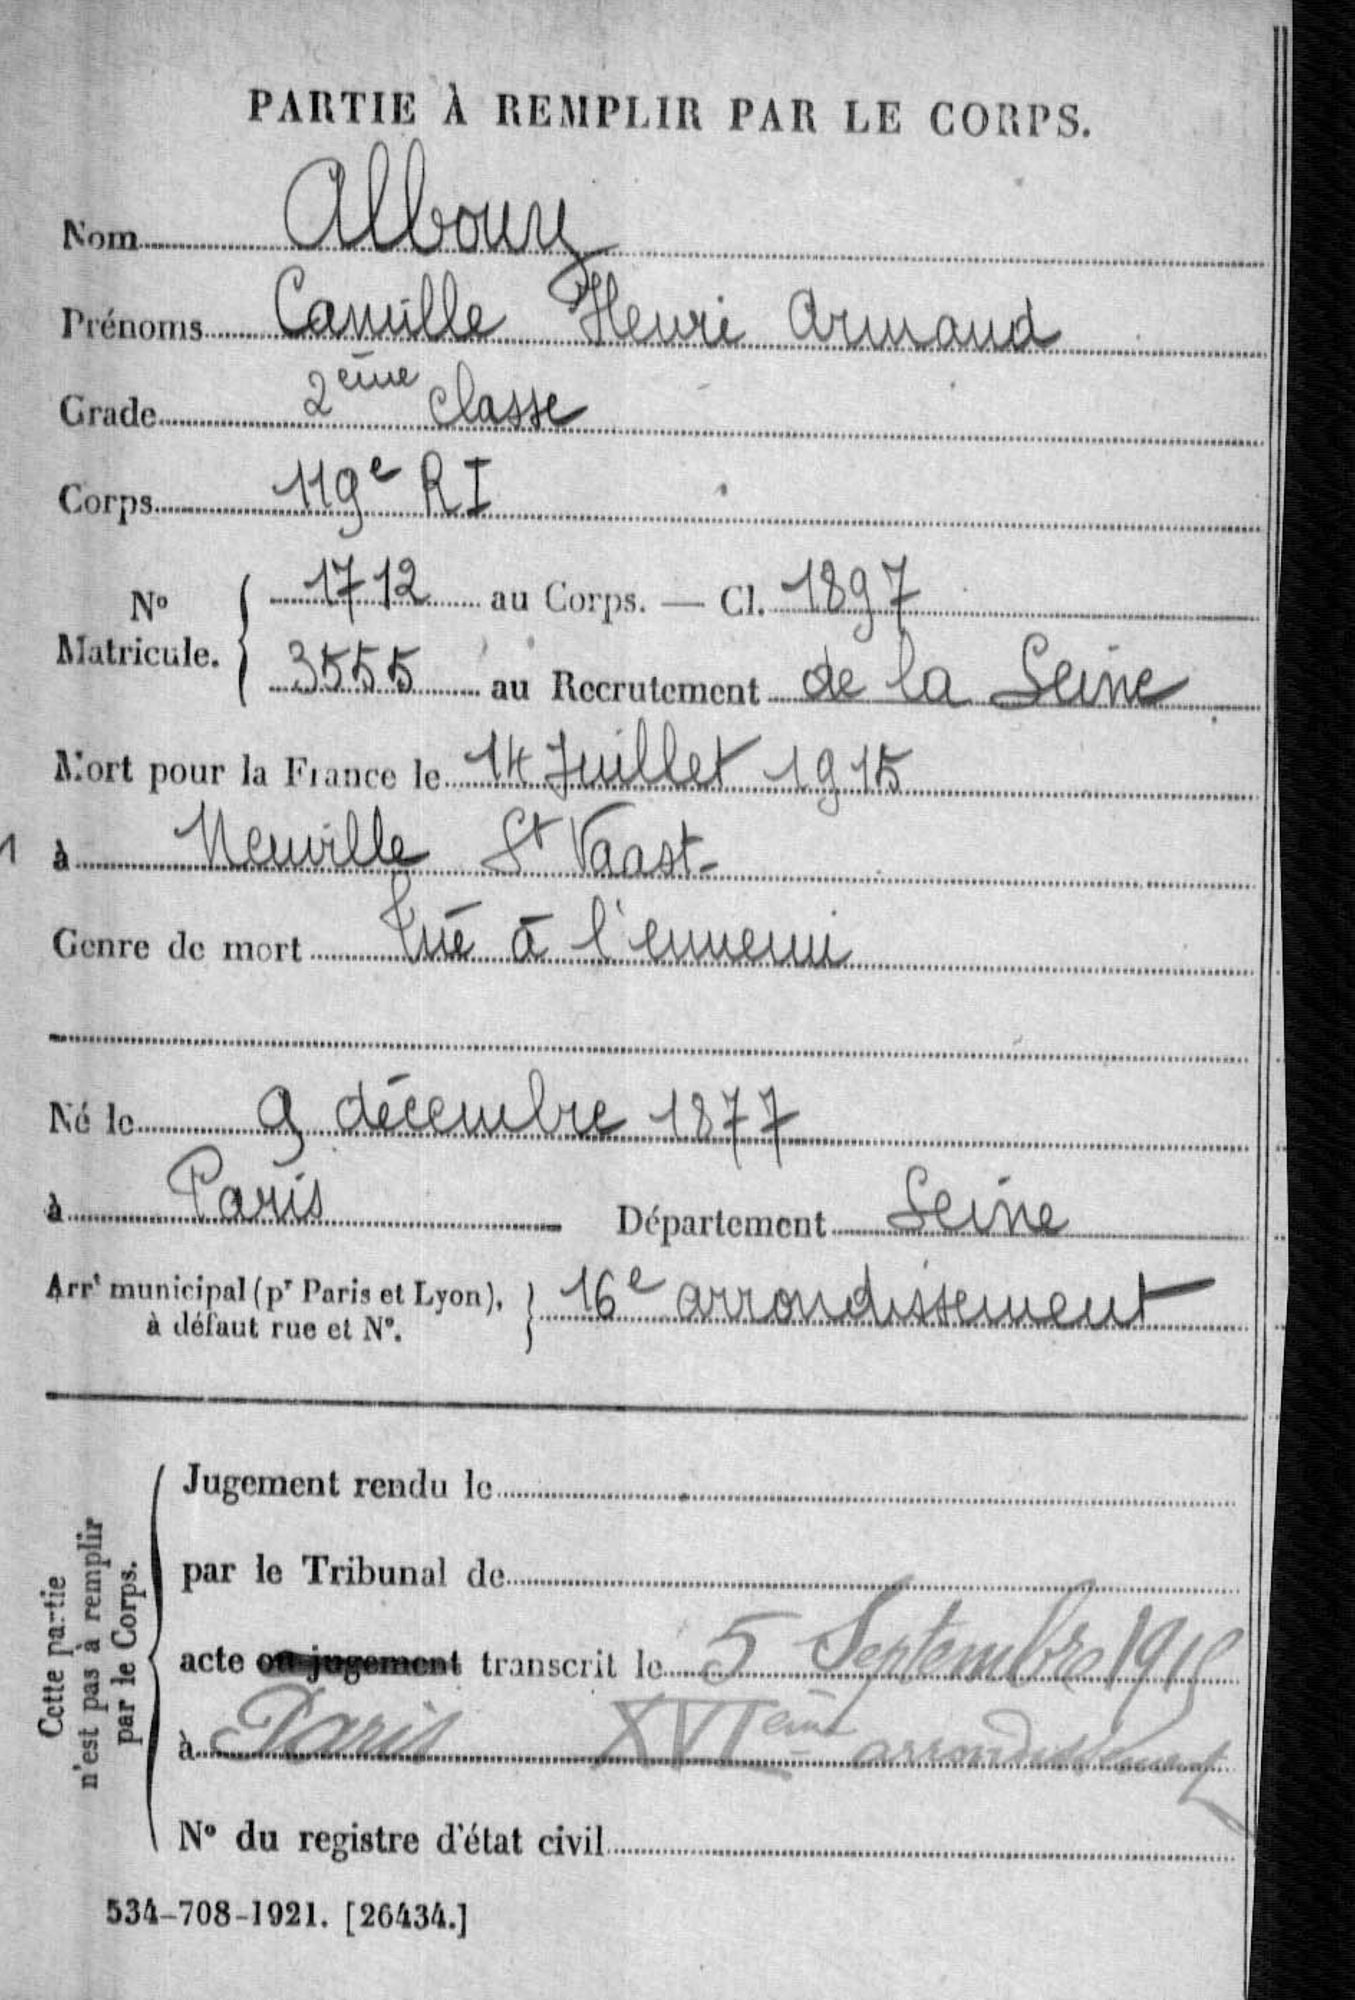 PARTIE À REMPLIR PAR LE CORPS.
Nom Alboury
Prénoms Camille Henri Armand
Grade 2ème classe
Corps 119e RI
No Matricule. 1712 au Corps. — Cl. 1897
3555 au Recrutement de la Seine
Mort pour la France le 14 Juillet 1915
à Neuville St Vaast
Genre de mort Tué à l'ennemi
Né le 9 décembre 1877
à Paris Département Seine
Arrt municipal (pr Paris et Lyon), à défaut rue et No. 16e arrondissement
Cette partie n'est pas à remplir par le Corps.
Jugement rendu le
par le Tribunal de
acte ou jugement transcrit le 5 Septembre 1915
à Paris XVIème arrondissement
No du registre d'état civil
534-708-1921. [26434.]